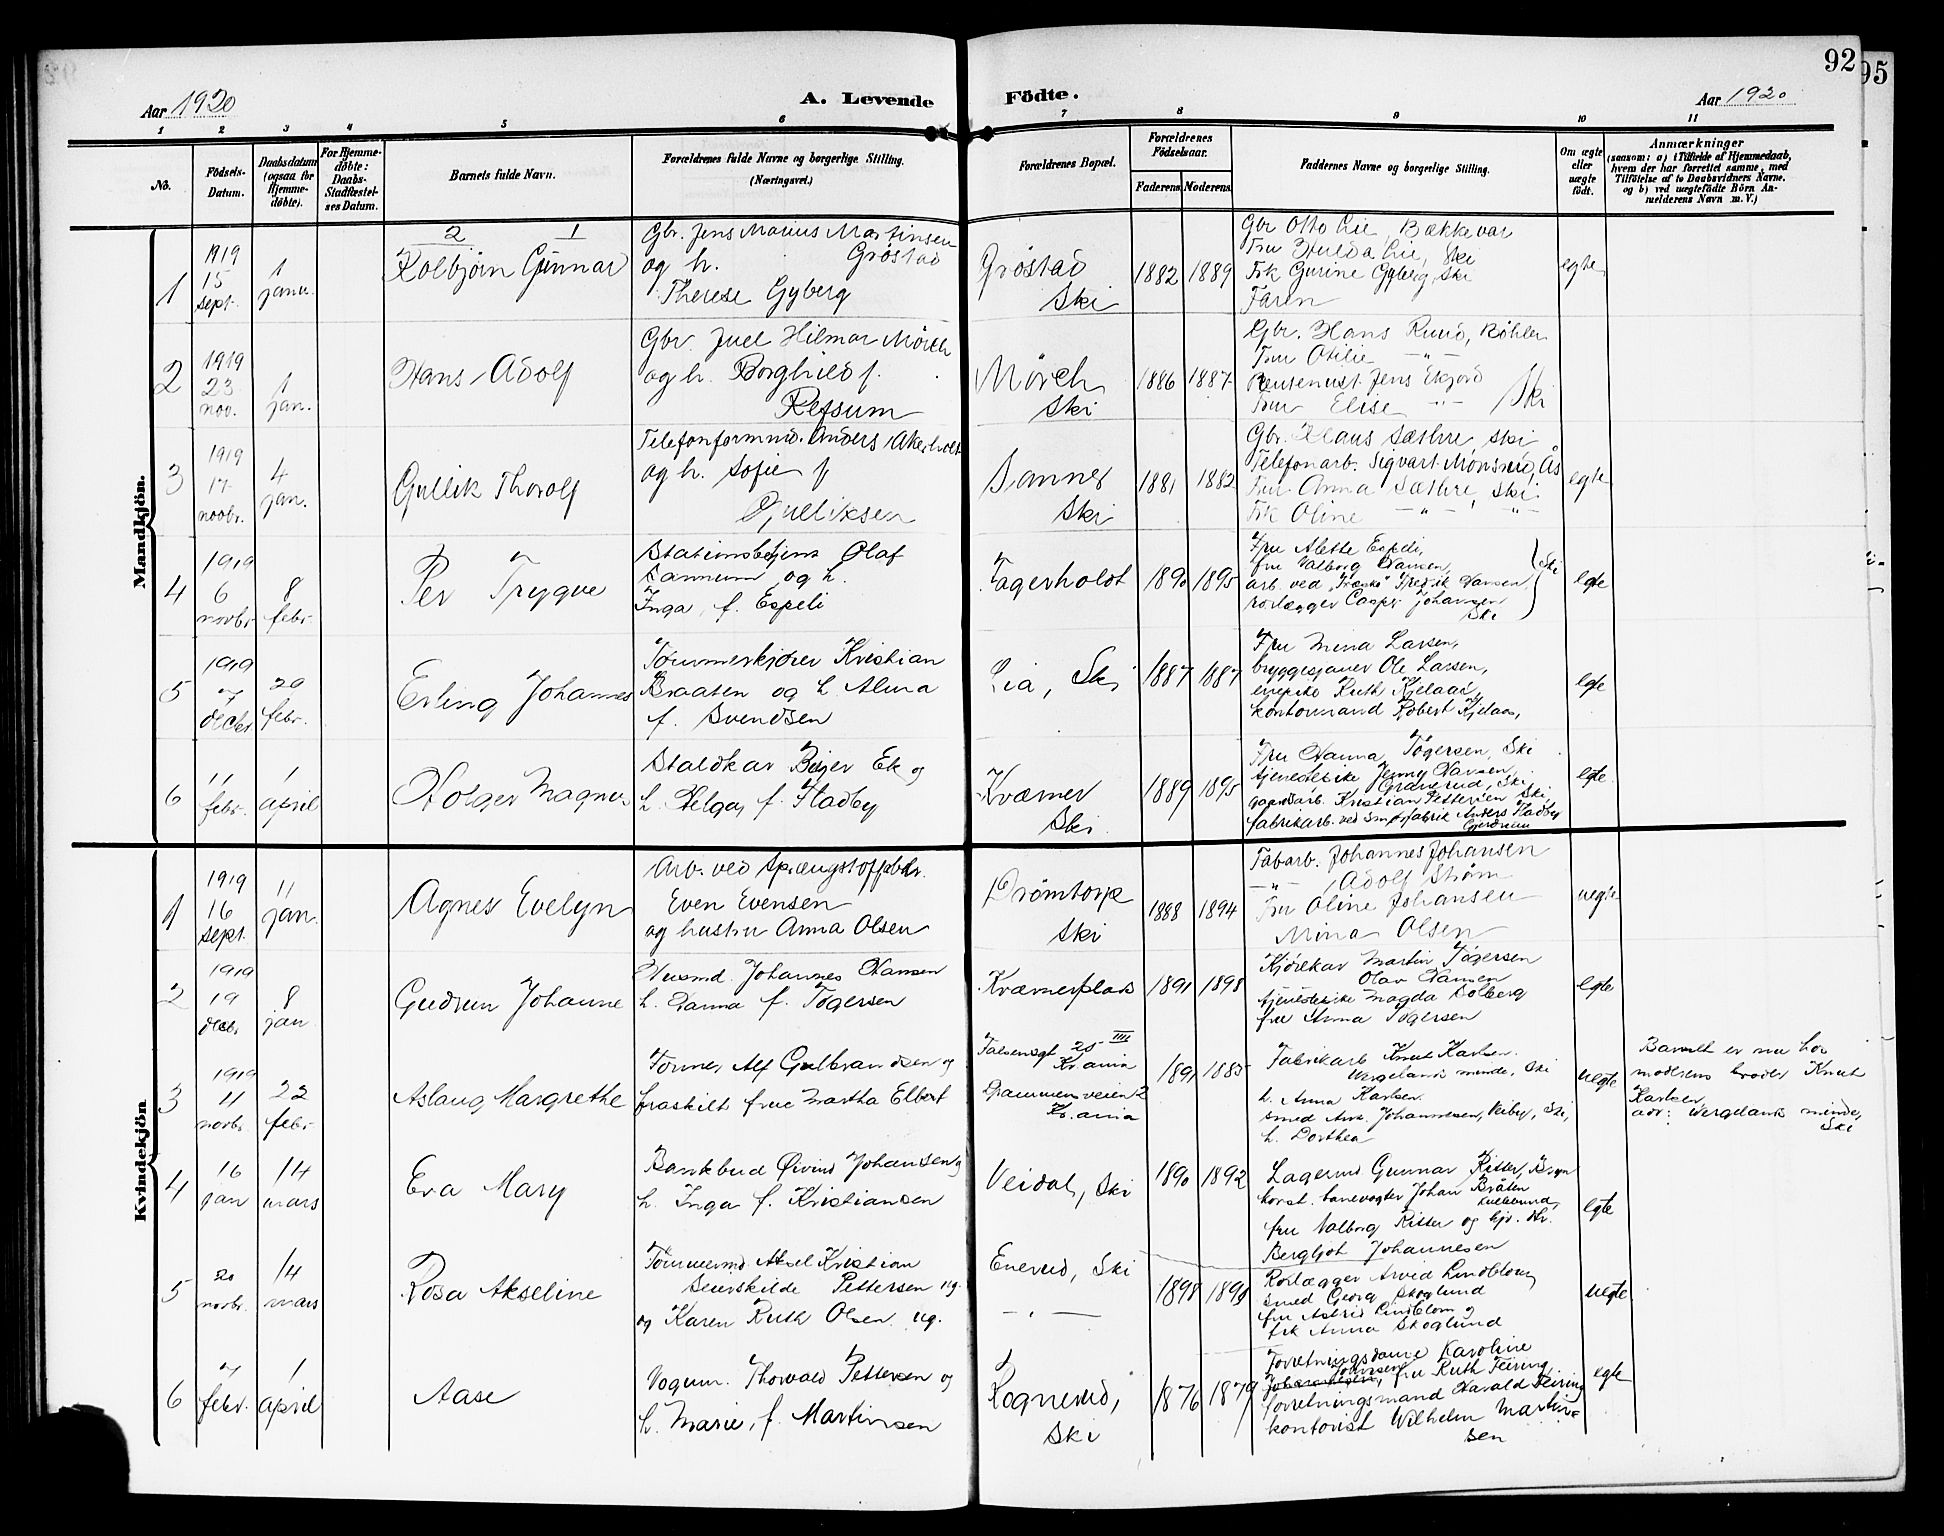 92
95
Aar 1920
A. Levende
Födte.
Aar 1920
1 2 3 4 5 6 7 8 9 10 11
No.
Födsels-Datum.
Daabsdatum (ogsaa for Hjemme-döbte).
For Hjemme-döbte: Daabs-Stadfæstel-ses Datum.
Barnets fulde Navn.
Forældrenes fulde Navne og borgerlige Stilling.
(Næringsvei.)
Forældrenes Bopæl.
Forældrenes Födselsaar.
Faderens. Moderens.
Faddernes Navne og borgerlige Stilling.
Om ægte eller uægte födt.
Anmærkninger
(saasom: a) i Tilfælde af Hjemmedaab,
hvem der har forrettet samme, med
Tilföielse af to Daabsvidners Navne.
og b) ved uægtefödte Börn An-
melderens Navn m. V.)
Mandkjön.
1
1919
15
sept.
1
janu.
2 1
Kolbjörn Gunnar
Gbr. Jens Marius Martinsen
og h. Gröstad
Therese Gyberg
Gröstad
Ski
1882
1889
Gbr Otto Lie, Bækkevar
Fru Hulda Lie, Ski
Frk Gurine Gyberg, Ski
Faren
egte
2
1919
23
nov.
1
jan.
Hans Adolf
Gbr. Juel Hilmar Mörch
og h. Borghild f.
Refsum
Mörch
Ski
1886
1887
Gbr. Hans Ruud, Köhler
Fru Otilie —"—
Jens Ekjord
Fru Elise —"— Ski
3
1919
17
novbr.
4
jan.
Gullik Thorolf
Telefonformnd. Anders Akerholt
og h. Sofie f
Gulliksen
Sanner
Ski
1881
1882
Gbr. Klaus Sæthre, Ski
Telefonarb. Sigvart Mönsrud, Ås
Fru Anna Sæthre, Ski
Frk Oline —"— —"—
egte
4
1919
6
novbr
8
febr.
Per Trygve
Stationsbetjent Olaf
Sannum og h.
Inga, f. Espeli
Fagerholdt
1890
1895
Fru Alette Espeli,
fru Valborg Hansen,
arb ved "Træsko" Fredrik Hansen
rørlægger Caspr. Johansen
Ski
Ski
egte
5
1919
7
decbr
29
febr.
Erling Johannes
Tömmerkjörer Kristian
Braaten og h. Alma
f. Svendsen
Lia, Ski
1887
1887
Fru Mina Larsen,
bryggesjauer Ole Larsen,
enepike Ruth Kjelaas,
kontormand Robert Kjelaas,
egte
6
11
febr.
1
april
Holger Magnus
Staldkar Birger Ek og
h. Helga, f. Fladby
Kværner
Ski
1889
1895
Fru Hanna Tögersen, Ski
tjenestepike Jenny Hansen,
Granerud, Ski
gaardsarb. Kristian Pettersen Ski,
fabrikarb. ved Anders Fladby
Gjerdrum
egte
Kvindekjön
1
1919
16
sept.
11
jan.
Agnes Evelyn
Arb. ved Sprængstoffabr.
Even Evensen
og hustru Anna Olsen
Drömtorp
Ski
1888
1894
Fabarb. Johannes Johansen
—"— Adolf Ström
Fru Oline Johansen
Mina Olsen
uegte
2
1919
19
decbr
8
jan.
Gudrun Johanne
Husmd. Johannes Hansen
h. Hanna f. Tögersen
Kværnerplads
1891
1898
Kjörekar Martin Tögersen
Olav Hansen
tjenestepike Magda Solberg
fru Anna Tögersen
egte
3
1919
11
novbr.
22
febr.
Aslaug Margrethe
Former Alf Gulbrandsen og
fraskilt frue Martha Elbert
Falsensgt 25 III
Kr.ania
Drammensveien 2
Kr.ania
1891
1885
Fabrikarb Knut Karlsen
Vergelands minde, Ski
h. Anna Karlsen
smed Ant. Johannesen, Veiby, Ski,
h. Dorthea
uegte
Barnet er nu hos
moderens broder Knut
Karlsen
adr: Vergelands minde,
Ski
4
16
jan
14
mars
Eva Mary
Bankbud Öivind Johansen og
h. Inga f. Kristiansen
Veidal, Ski
1890
1892
Lagermd Gunnar Ritter, Bryn
konst. banevogter Johan Bråten
fru Valborg Ritter og
Bergljot Johannesen
egte
5
20
novbr.
14
mars
Rosa Akseline
Tömmermd Aksel Kristian
Seierskilde Pettersen ug.
og Karen Ruth Olsen ug.
Enerud, Ski
— " —
1898
Rörlægger Arvid Lindblom,
smed Georg Skoglund
fru Astrid Lindblom og
frk Anna Skoglund
uegte
6
7
febr.
1
april
Aase
Vognm. Thorvald Pettersen og
h. Marie, f. Martinsen
Rognerud,
Ski
1876
1879
Forretningsdame Karoline
Johansen, fru Ruth Feiring,
forretningsmand Harald Feiring
kontorist Wilhelm Martin=
sen
egte